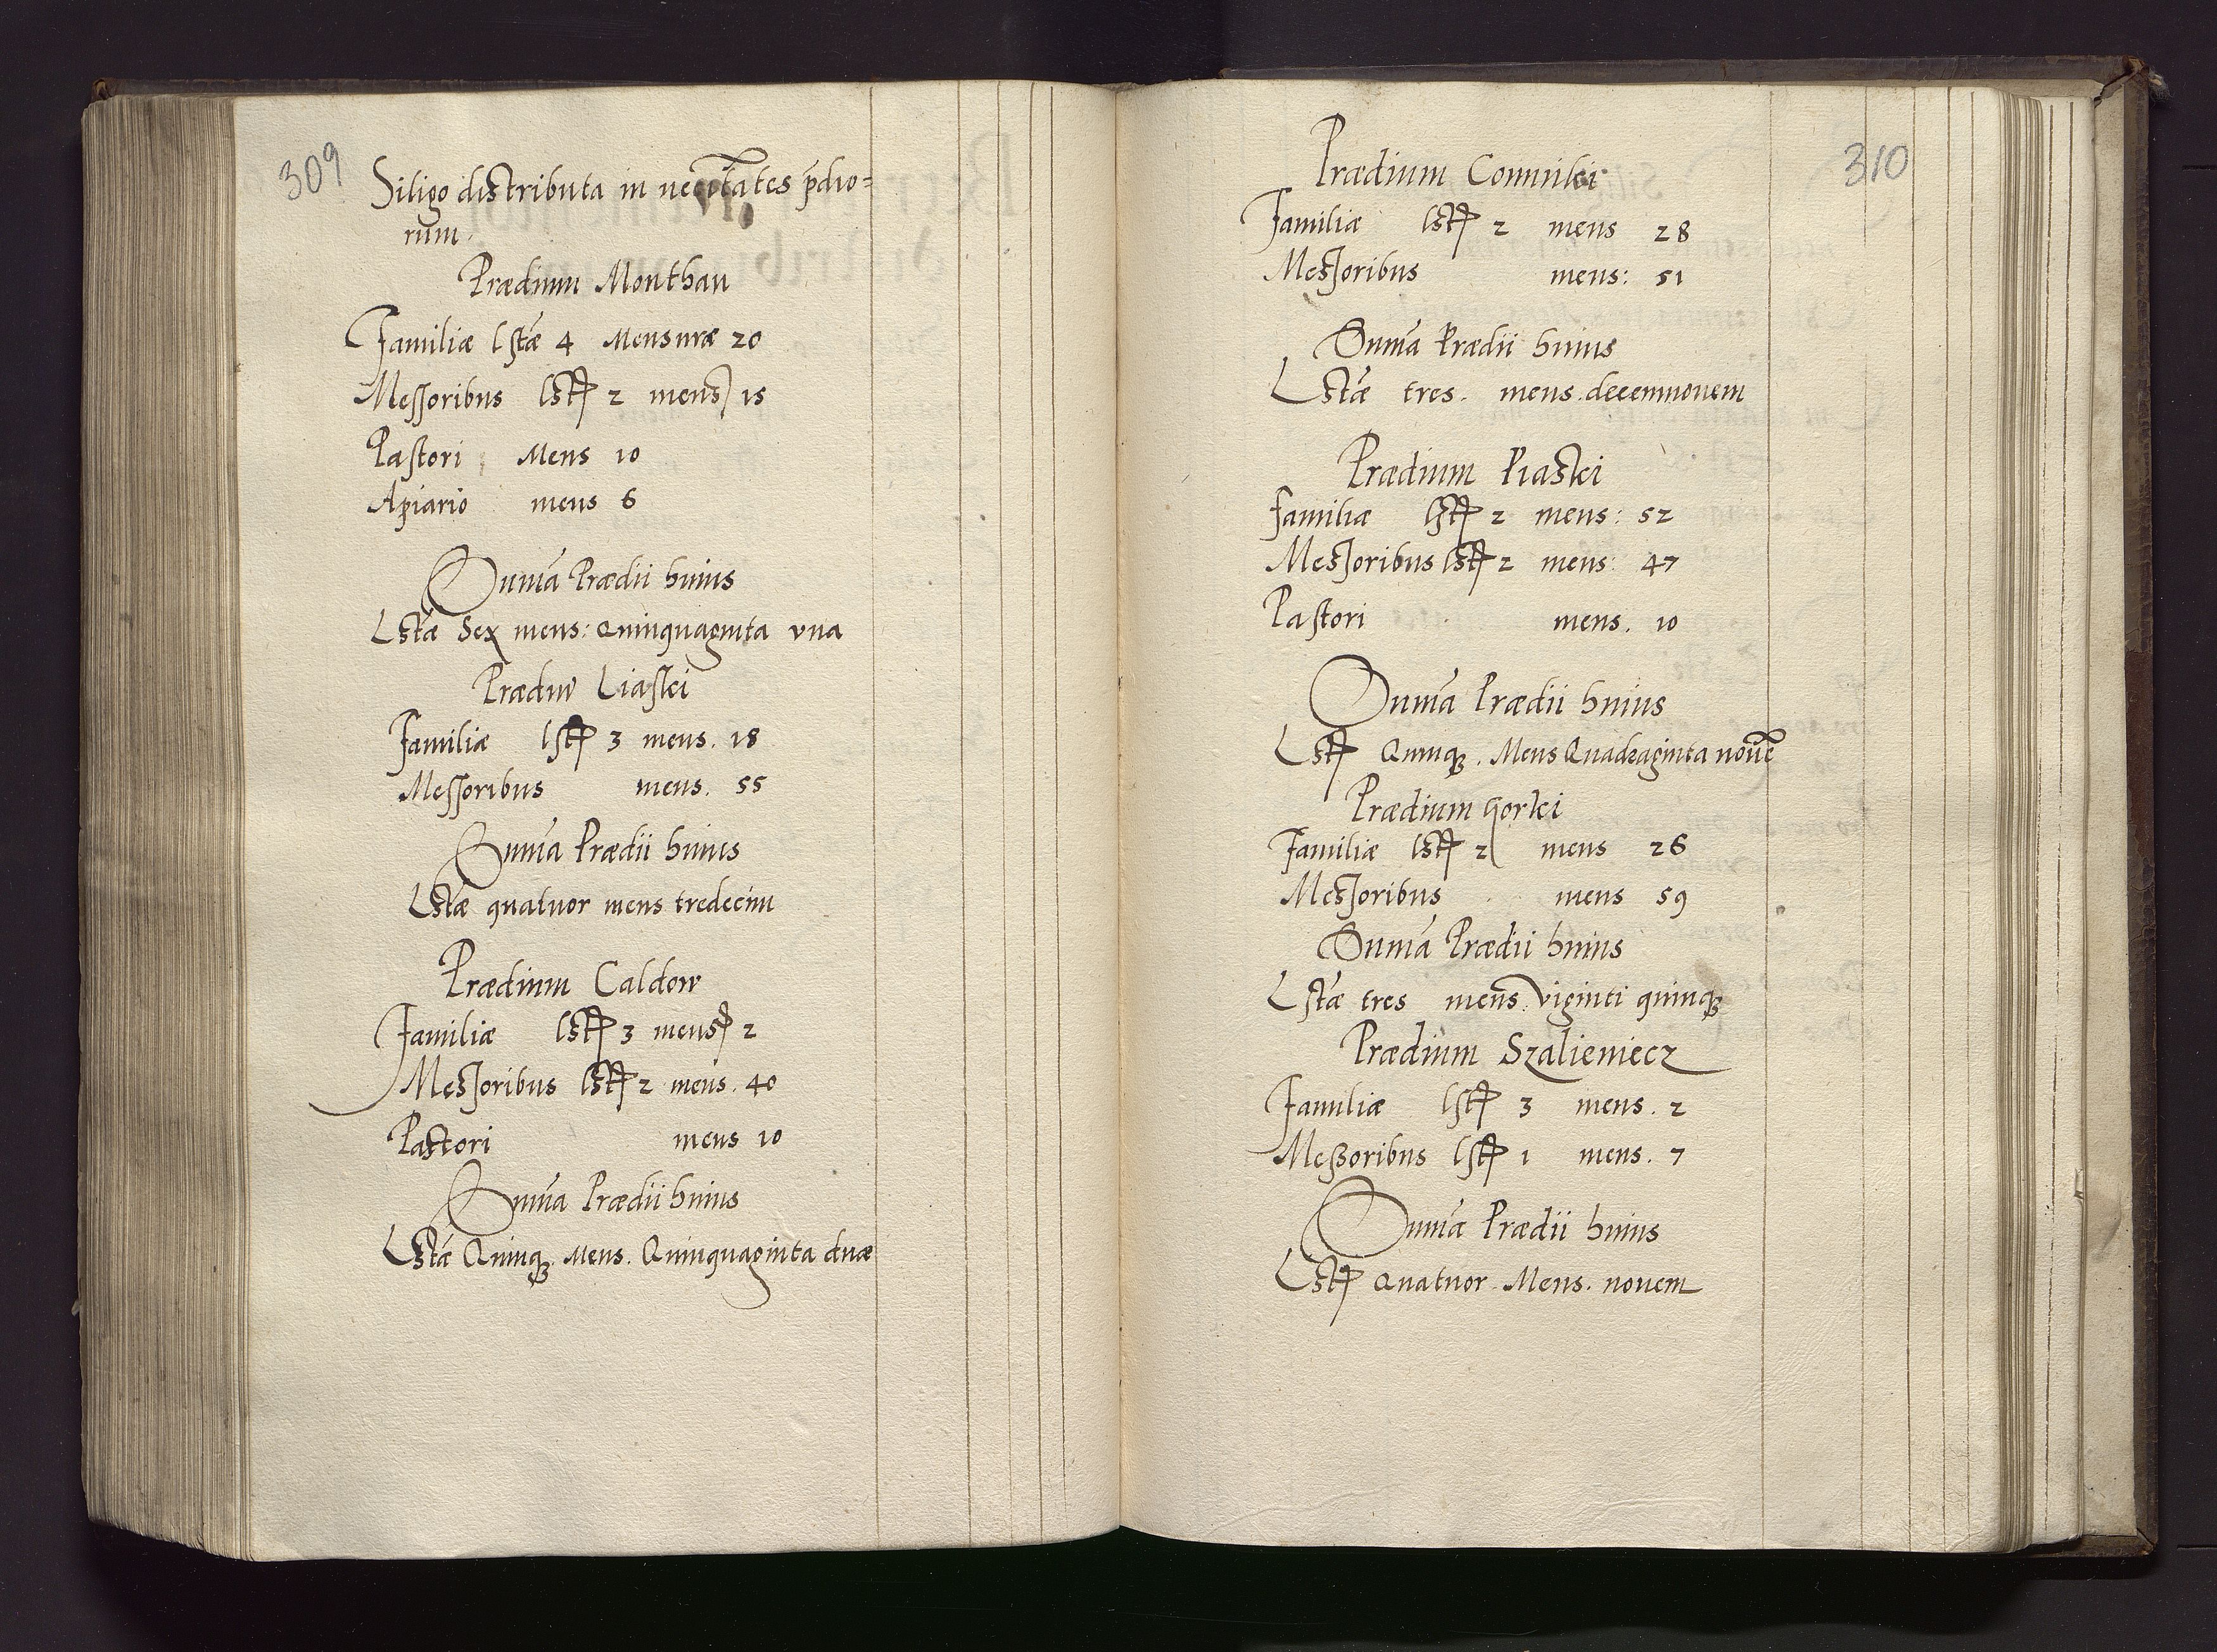 309
Siligo distributa in necessitates prædio=
rum
Prædium Monthau
Familiæ lstæ 4 Mensuræ 20
Messoribus lst 2 mens 15
Pastori Mens 10
Apiario mens 6
Suma Prædii huius
Lstæ Sex mens: Quinquaginta vna
Prædiu Liaski
Familiæ lst 3 mens. 18
Messoribus mens. 55
Suma Prædii huius
Lstæ quatuor mens tredecim
Prædium Caldow
Familiæ lst 3 mens 2
Messoribus lst 2 mens. 40
Pastori mens 10
Suma Prædii huius
Lstæ Quinq. Mens. Quinquaginta duæ
310
Prædium
Familiæ lst 2 mens 28
Messoribus mens: 51
Suma Prædii huius
Lstæ tres. mens. decemnouem
Prædium Piaski
Familiæ lst 2 mens: 52
Messoribus lst 2 mens: 47
Pastori mens. 10
Suma Prædii huius
Lst Quinq. Mens Quadraginta noue
Prædium Gorki
Familiæ lst 2 mens 26
Messoribus mens 59
Suma Prædii huius
Lstæ tres mens. Viginti quinq
Prædium Szalieniecz
Familiæ lst 3 mens. 2
Meßoribus lst 1 mens. 7
Suma Prædii huius
Lst Quatuor. Mens. nouem